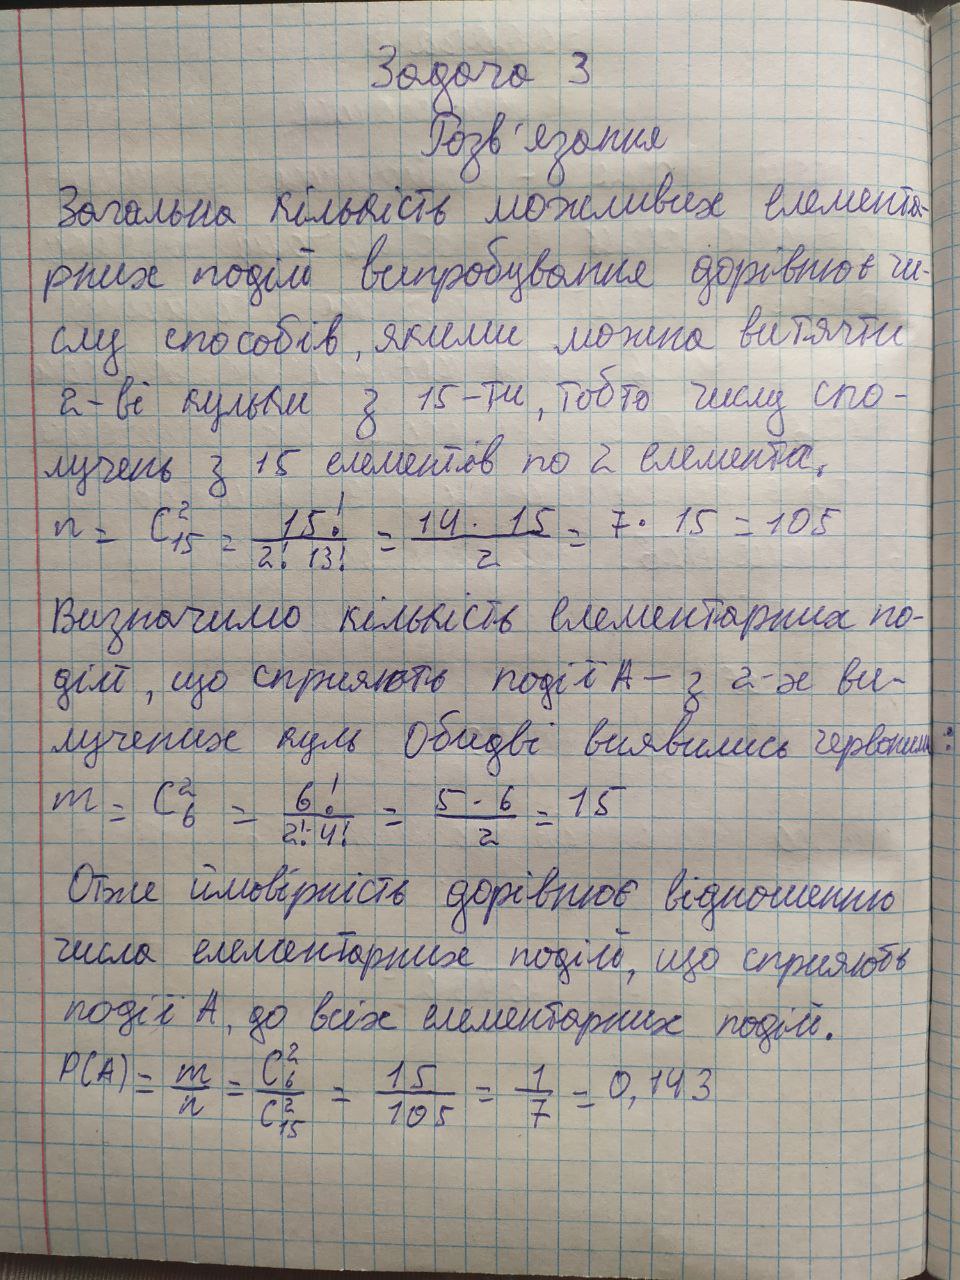 Задача 3
Розв'язання
Загальна кількість можливих елемента-
рних подій випробування дорівнює чи-
слу способів, якими можна витягти
2-ві кульки з 15-ти, тобто числу спо-
лучень з 15 елементів по 2 елемента.
n = C²₁₅ = 15!/(2! 13!) = (14 · 15)/2 = 7 · 15 = 105
Визначимо кількість елементарних по-
дій, що сприяють події А – з 2-х ви-
лучених куль обидві виявились червоними:
m = C²₆ = 6!/(2! · 4!) = (5 · 6)/2 = 15
Отже ймовірність дорівнює відношенню
числа елементарних подій, що сприяють
події А, до всіх елементарних подій.
P(A) = m/n = C²₆/C²₁₅ = 15/105 = 1/7 = 0,143